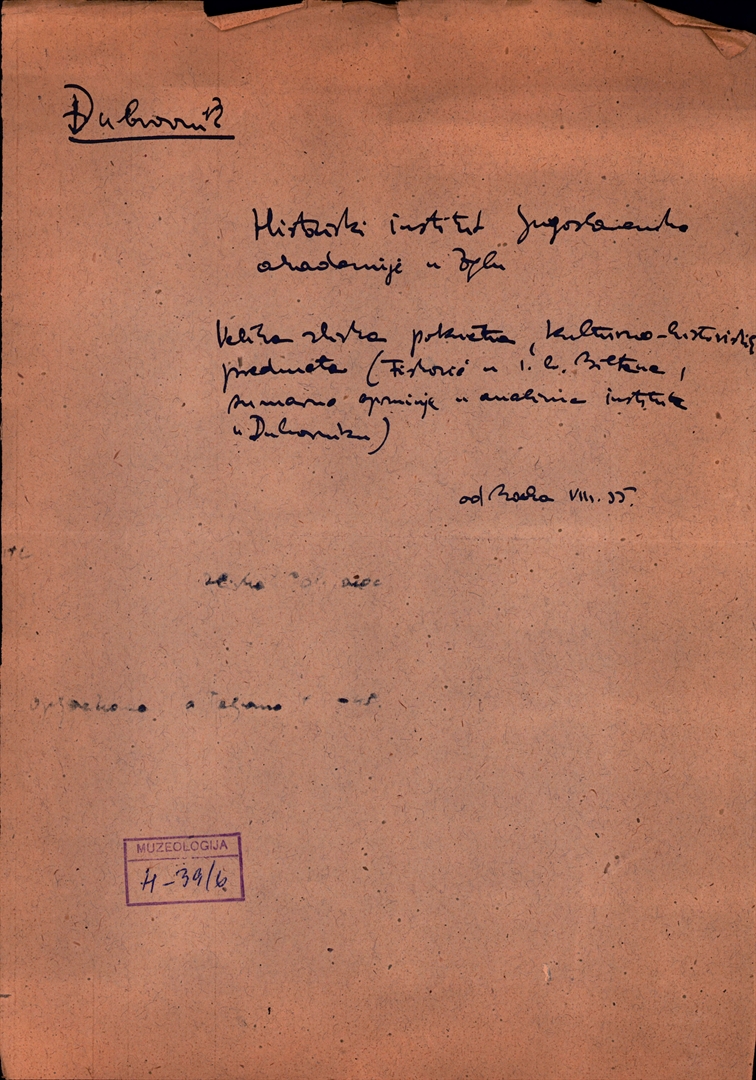 Dubrovnik
Historiski institut Jugoslavenske
akademije u Zgbu
Velika zbirka pokretna, kulturno-historiskih
predmeta (Fisković u Biltenu,
sumarno u analima instituta
u Dubrovniku)
od VIII. 55.
MUZEOLOGIJA
H-39/6